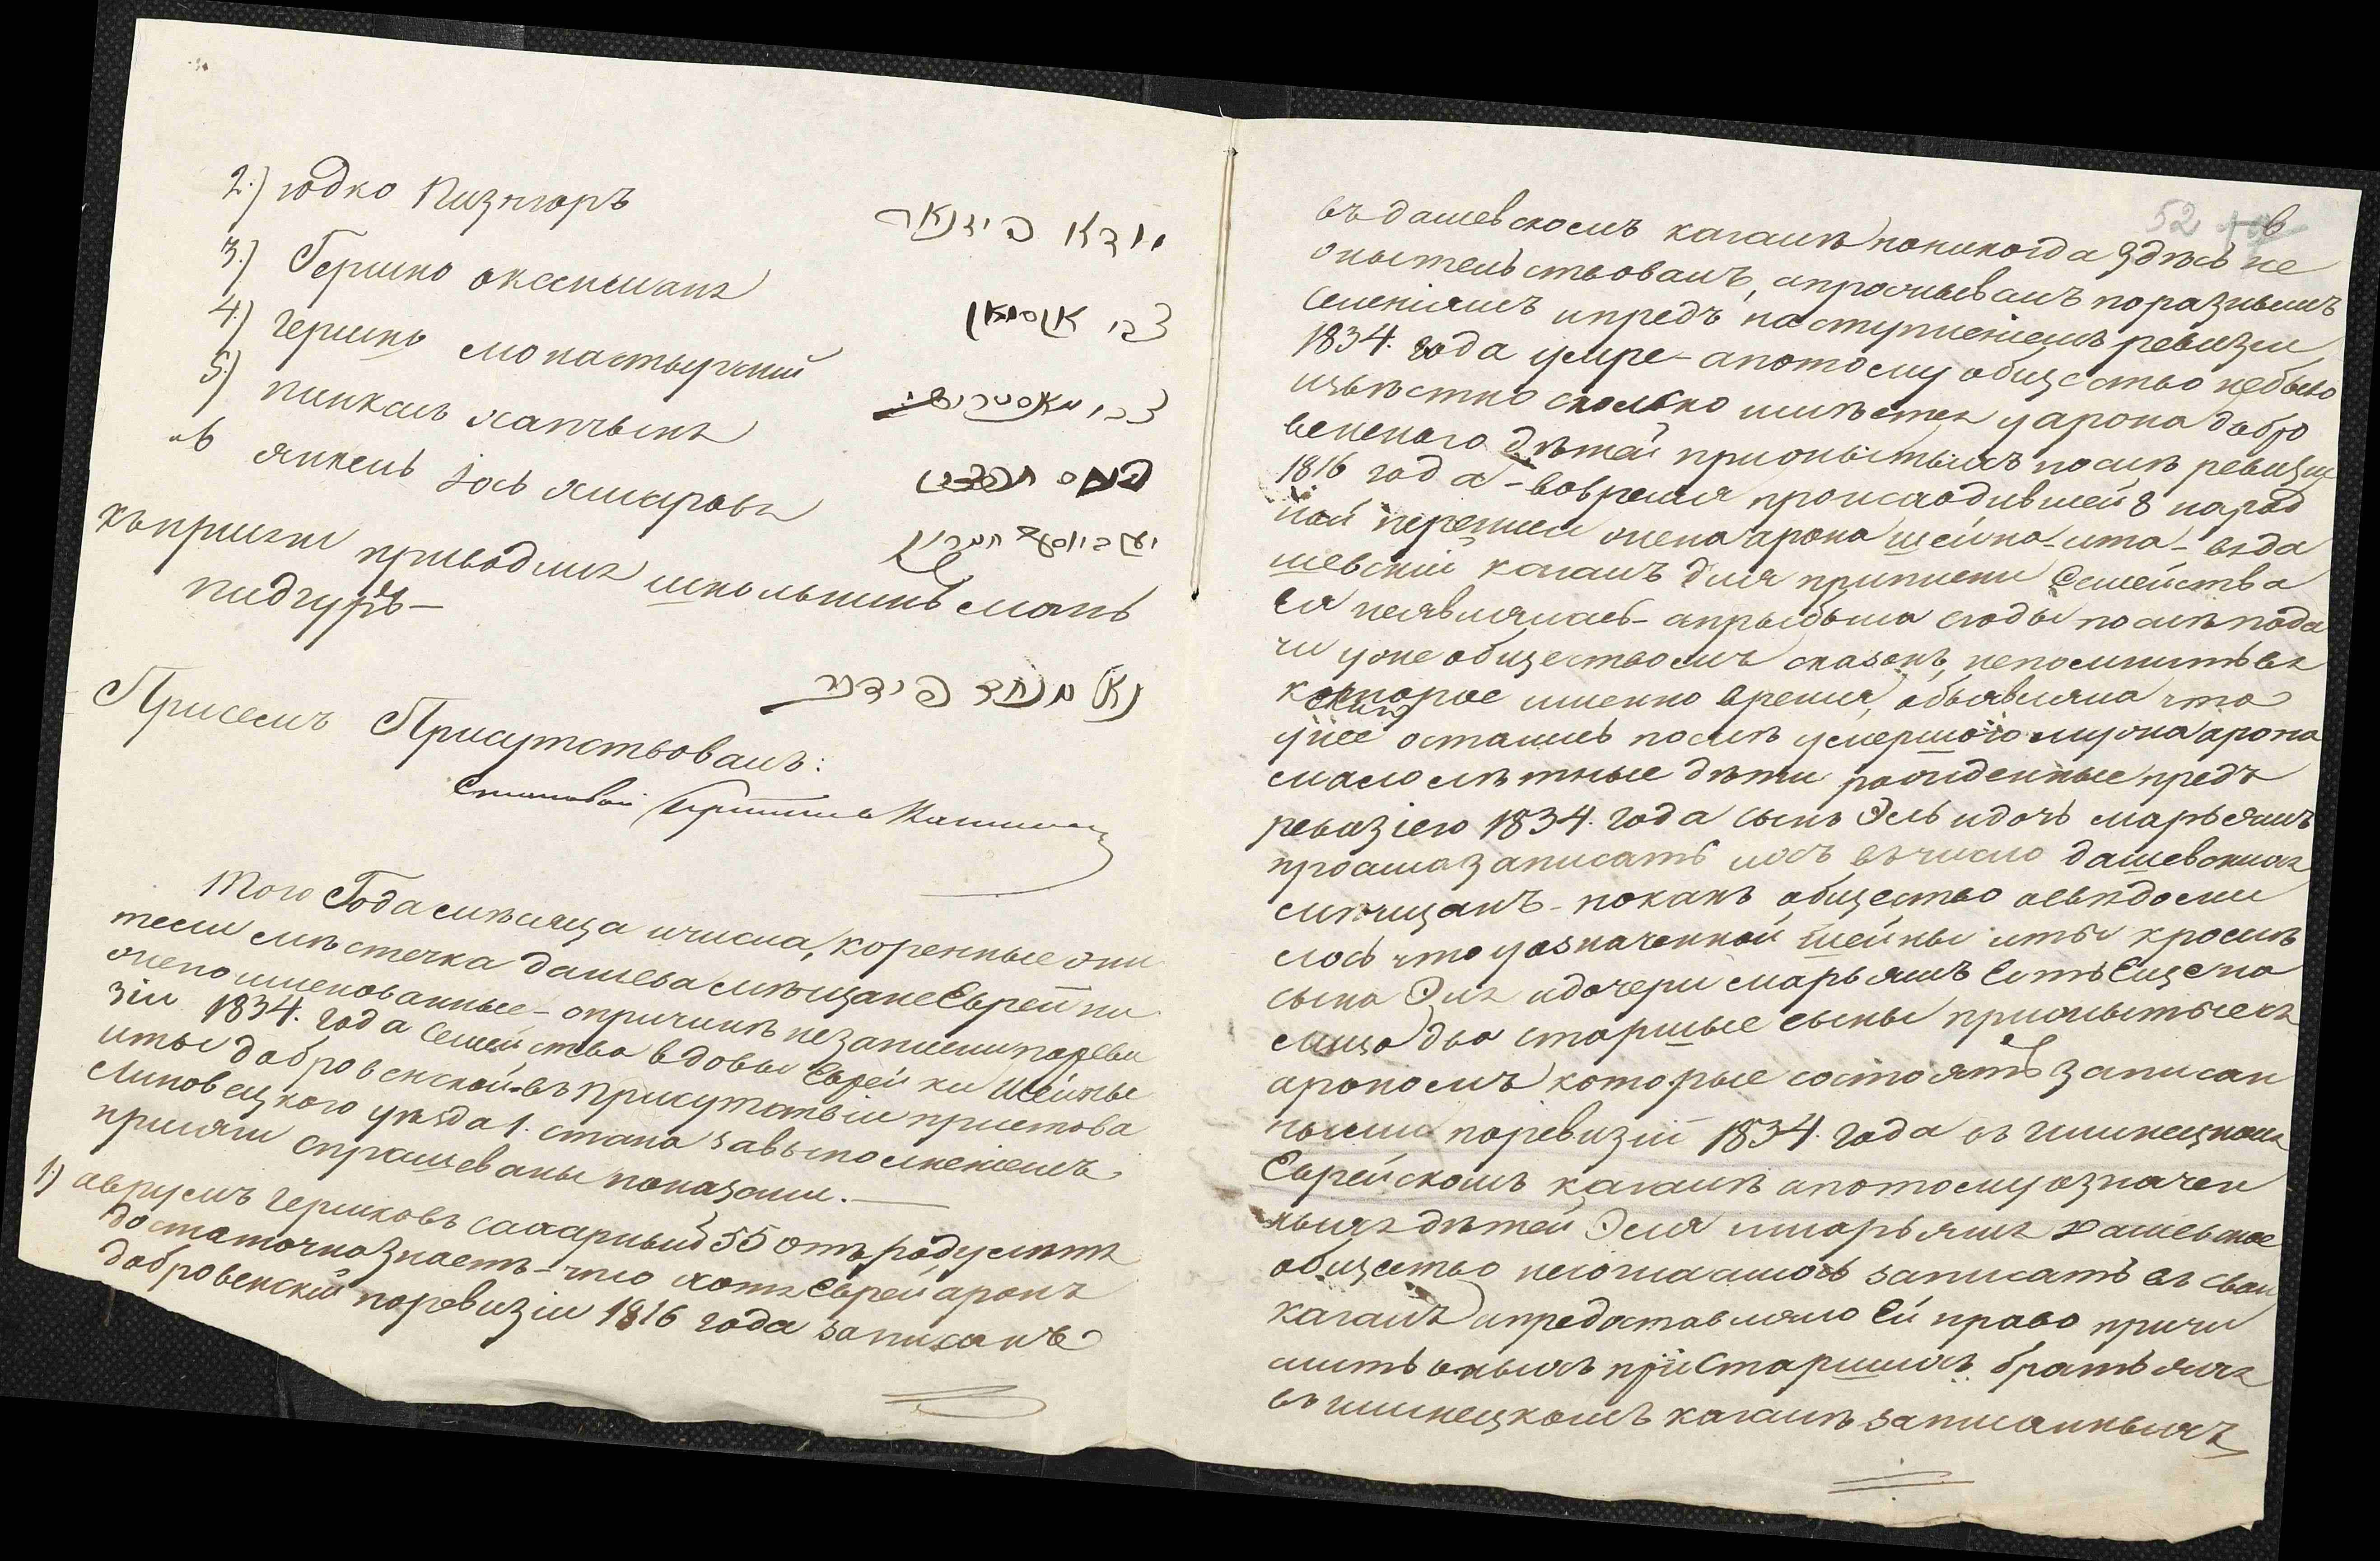 2.) юдко Пизнюръ
יודא פידנאר
3.) Гершко оксенманъ
צבי אקסמאן
4.) гершко монастырский
צבי
5.) пинкасъ хапчыкъ
פנחס
6 янкель іось хмаровъ
יעקב יוסף
къприсяги приводилъ школьникъ манъ
пидгуръ—
נאם מנחם פידגיר
Присемъ Присутствовалъ:
Становой Приставъ
Того Года мѣсяца ичисла, коренные жи
тели мѣстечка дашева мѣщане Евреи ни
жепоименованные – опричинѣ незаписки пореви
зіи 1834. года Семейства вдовы Еврейки Шейны
иты добровенской – въ присутствіи пристова
Липовецкого уѣзда 1. стана завыполненіемъ
присяги спрашеваны показали.—
1) аврумъ гершковъ сахарный 55 отъ роду лѣтъ
достаточно знаетъ – что хотя Еврей аронъ
добровенскій поревизіи 1816 года записанъ
52
въ дашевскомъ кагалѣ ноникогда здѣсь не
жительствовалъ, апроживалъ поразнымъ
селеніямъ ипредъ наступленіемъ ревизіи
1834. года умре – апотому общество небыло
извѣстно сколько имѣетъ уарона добро
венского дѣтей прижытыхъ послѣ ревизіи
1816 года – вовремя происходившей 8 народ
ной переписи жена арона шейна – ита – въда
шевскій кагалъ для приписки Семейства
Ея неявлялась – апрыбыла сюды послѣ пода
чи уже обществомъ сказокъ, непомнитъ въ
которое именно время, объявляла что
унее остались послѣ умершого мужа арона
малолѣтные дѣти рожденные предъ
ревизіею 1834. года сынъ Эль идочь марьямъ
просила записать ихъ вчисло дашевскихъ
мѣщанъ – нокакъ общество освѣдоми
лось что уозначенной шейны иты кромѣ
сына Эля идочери марьямъ Есть Еще на
лицо два старшые сыны прижытые съ
арономъ которые состоятъ записан
ными поревизіи 1834. года въ илинецкомъ
Еврейскомъ кагалѣ апотому означен
ныхъ дѣтей Эля имарьямъ дашевское
общество несогласилось записать въ свой
кагалъ ипредоставляло Ей право причи
слить оныхъ пристаршихъ братьяхъ
въ илинецкомъ кагалѣ записанныхъ